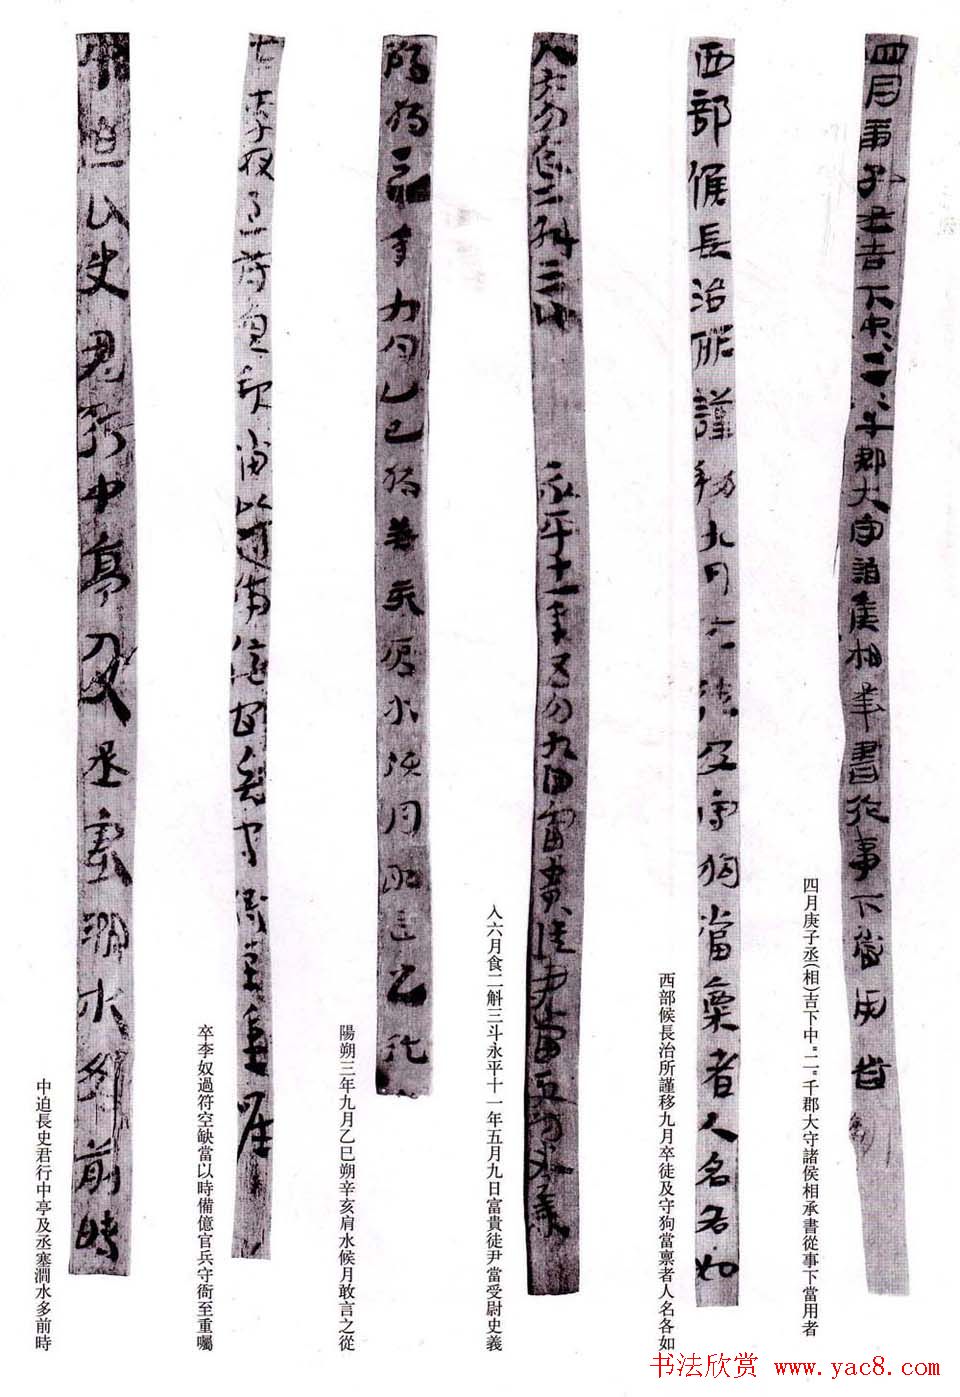 四月庚子丞(相)吉下中〓二〓千郡大守諸侯相承書從事下當用者
西部候長治所謹移九月卒徒及守狗當稟者人名各如
入六月食二斛三斗永平十一年五月九日富貴徒尹當受尉史義
陽朔三年九月乙巳朔辛亥肩水候月敢言之從
卒李奴過符空缺當以時備億官兵守衙至重囑
中迫長史君行中亭及丞塞澗水多前時
书法欣赏 www.yac8.com